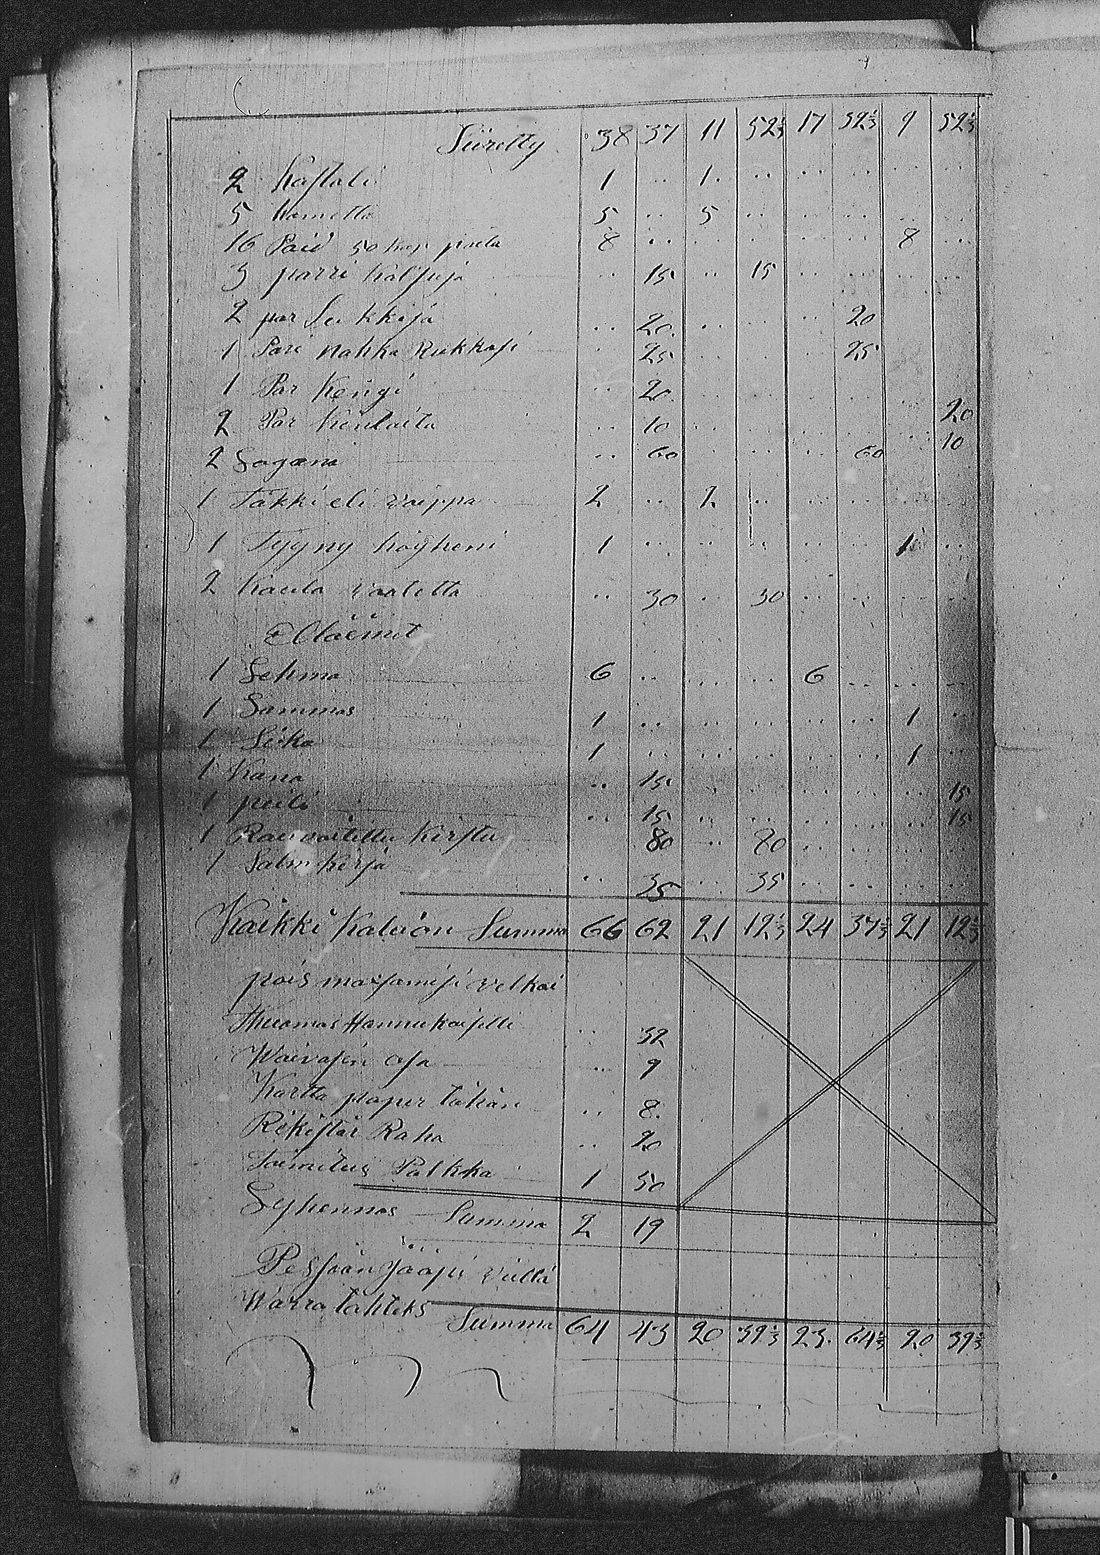 Siiretty 38 37 11 52⅓ 17 52⅓ 9 52⅓
2 Kastali 1 .. 1 .. .. .. .. ..
5 Hametta 5 .. 5 .. .. .. .. ..
16 Paid 50 kop pailu 8 .. .. .. .. .. 8 ..
3 parri Kalsuja .. 15 .. 15 .. .. .. ..
2 par Sukkija .. 20 .. .. .. 20
1 Pari nahka Rukkasi .. 25 .. .. .. 25
1 Par Kengi .. 20 .. .. .. .. .. 20
2 Par .. 10 .. .. .. .. .. 10
2 .. 60 .. .. .. 60
1 Täkki eli vaippa 2 .. 2 .. .. .. .. ..
1 Tyyny höyheni 1 .. .. .. .. .. 1 ..
2 Kaula vaatetta .. 30 .. 30 .. .. .. ..
Elläimit
1 Lehma 6 .. .. .. 6 .. .. ..
1 Lammas 1 .. .. .. .. .. 1 ..
1 Sika 1 .. .. .. .. .. 1 ..
1 Kana .. 15 .. .. .. .. .. 15
1 peili .. 15 .. .. .. .. .. 15
1 Rautoitettu Kirstu 80 .. 80 .. .. .. ..
1 Salm kirja .. 35 .. 35 .. .. .. ..
Kaikki Kaluon Summa 66 62 21 12⅓ 24 37⅓ 21 12⅓
pois maxamisi velkai
Thuomas Hannukaiselle .. 32
Waivasin osa .. 9
Kartta paper tähän .. 8
Rekistär Raha .. 20
Toimitus Palkka 1 50
Syhennos Summa 2 19
Pesään Jääpi vielä
Warra tähteks
Summa 64 43 20 39⅓ 23 64⅓ 20 39⅓